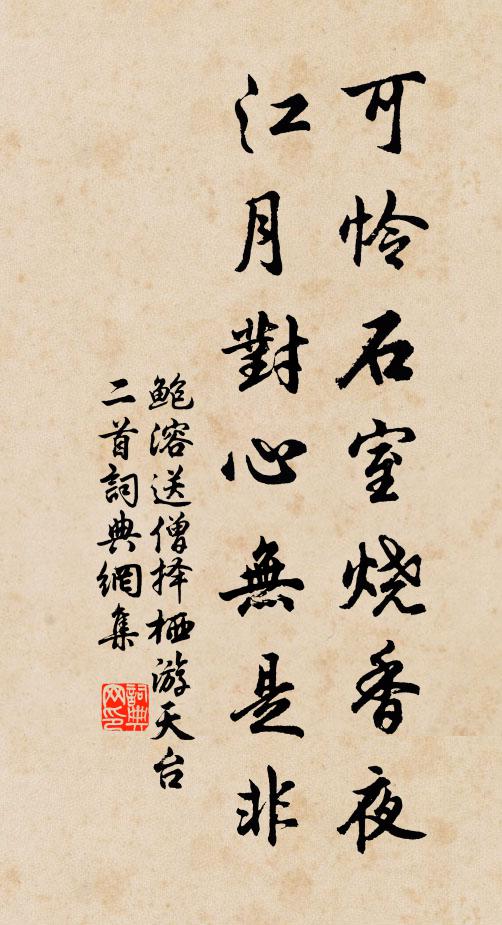 可怜石室烧香夜
江月對心無是非
鲍溶送僧择栖游天台
二首詞典網集
詞典
网印